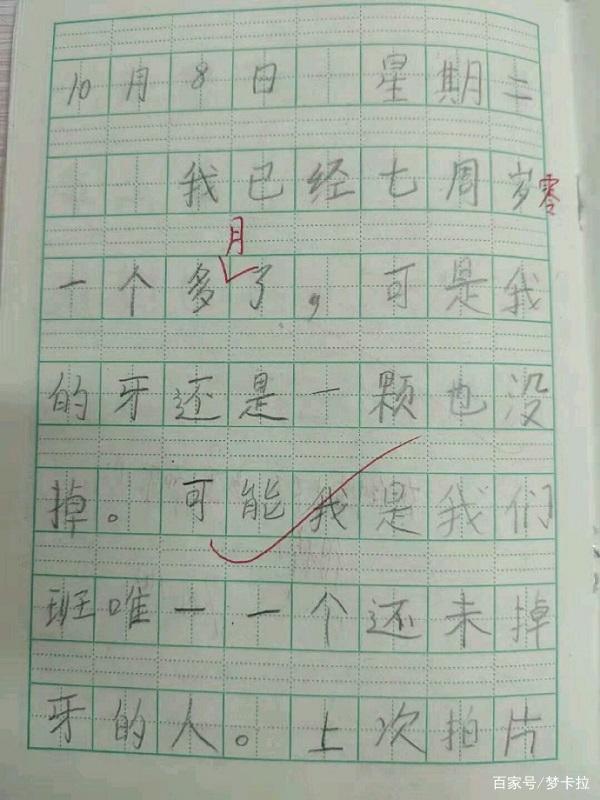 10月8日 星期二
我已经七周岁零
月
一个多了，可是我
的牙还是一颗也没
掉。可能我是我们
班唯一一个还未掉
牙的人。上次拍片
百家号/梦卡拉